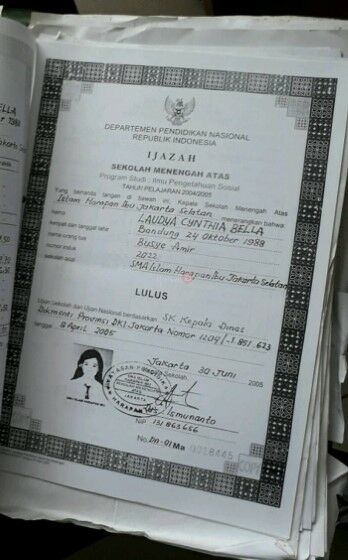 DEPARTEMEN PENDIDIKAN NASIONAL
REPUBLIK INDONESIA
IJAZAH
SEKOLAH MENENGAH ATAS
Program Studi : Ilmu Pengetahuan Sosial
TAHUN PELAJARAN 2004/2005
Yang bertanda tangan di bawah ini, Kepala Sekolah Menengah Atas
Islam Harapan Ibu Jakarta Selatan menerangkan bahwa:
nama LAUDYA CYNTHIA BELLA
tempat dan tanggal lahir Bandung 24 Oktober 1988
nama orang tua Busye Amir
nomor induk 2022
sekolah asal SMA Islam Harapan Ibu Jakarta Selatan
LULUS
Ujian Sekolah dan Ujian Nasional berdasarkan SK Kepala Dinas
Dikmenti Provinsi DKI Jakarta Nomor
tanggal 8 April 2005
Jakarta 30 Juni 2005
Sekolah
HARAPAN IBU
JAKARTA
Ismunanto
NIP 131863656
No. DN-01 Ma 0018445
COPY